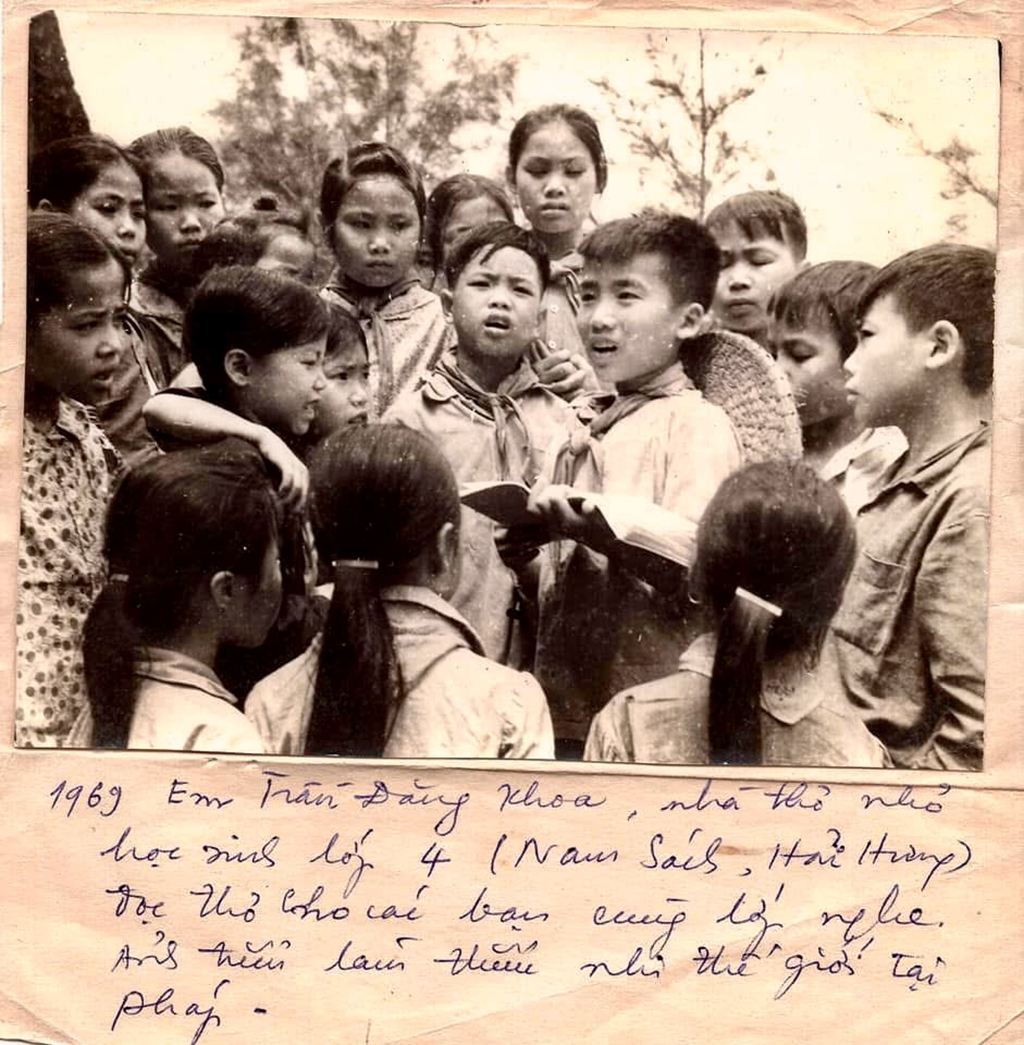 1969 Em Trần Đăng Khoa, nhà thơ nhỏ
học sinh lớp 4 (Nam Sách, Hải Hưng)
đọc thơ cho các bạn cùng lớp nghe.
Ảnh triển lãm thiếu nhi thế giới tại
Pháp -